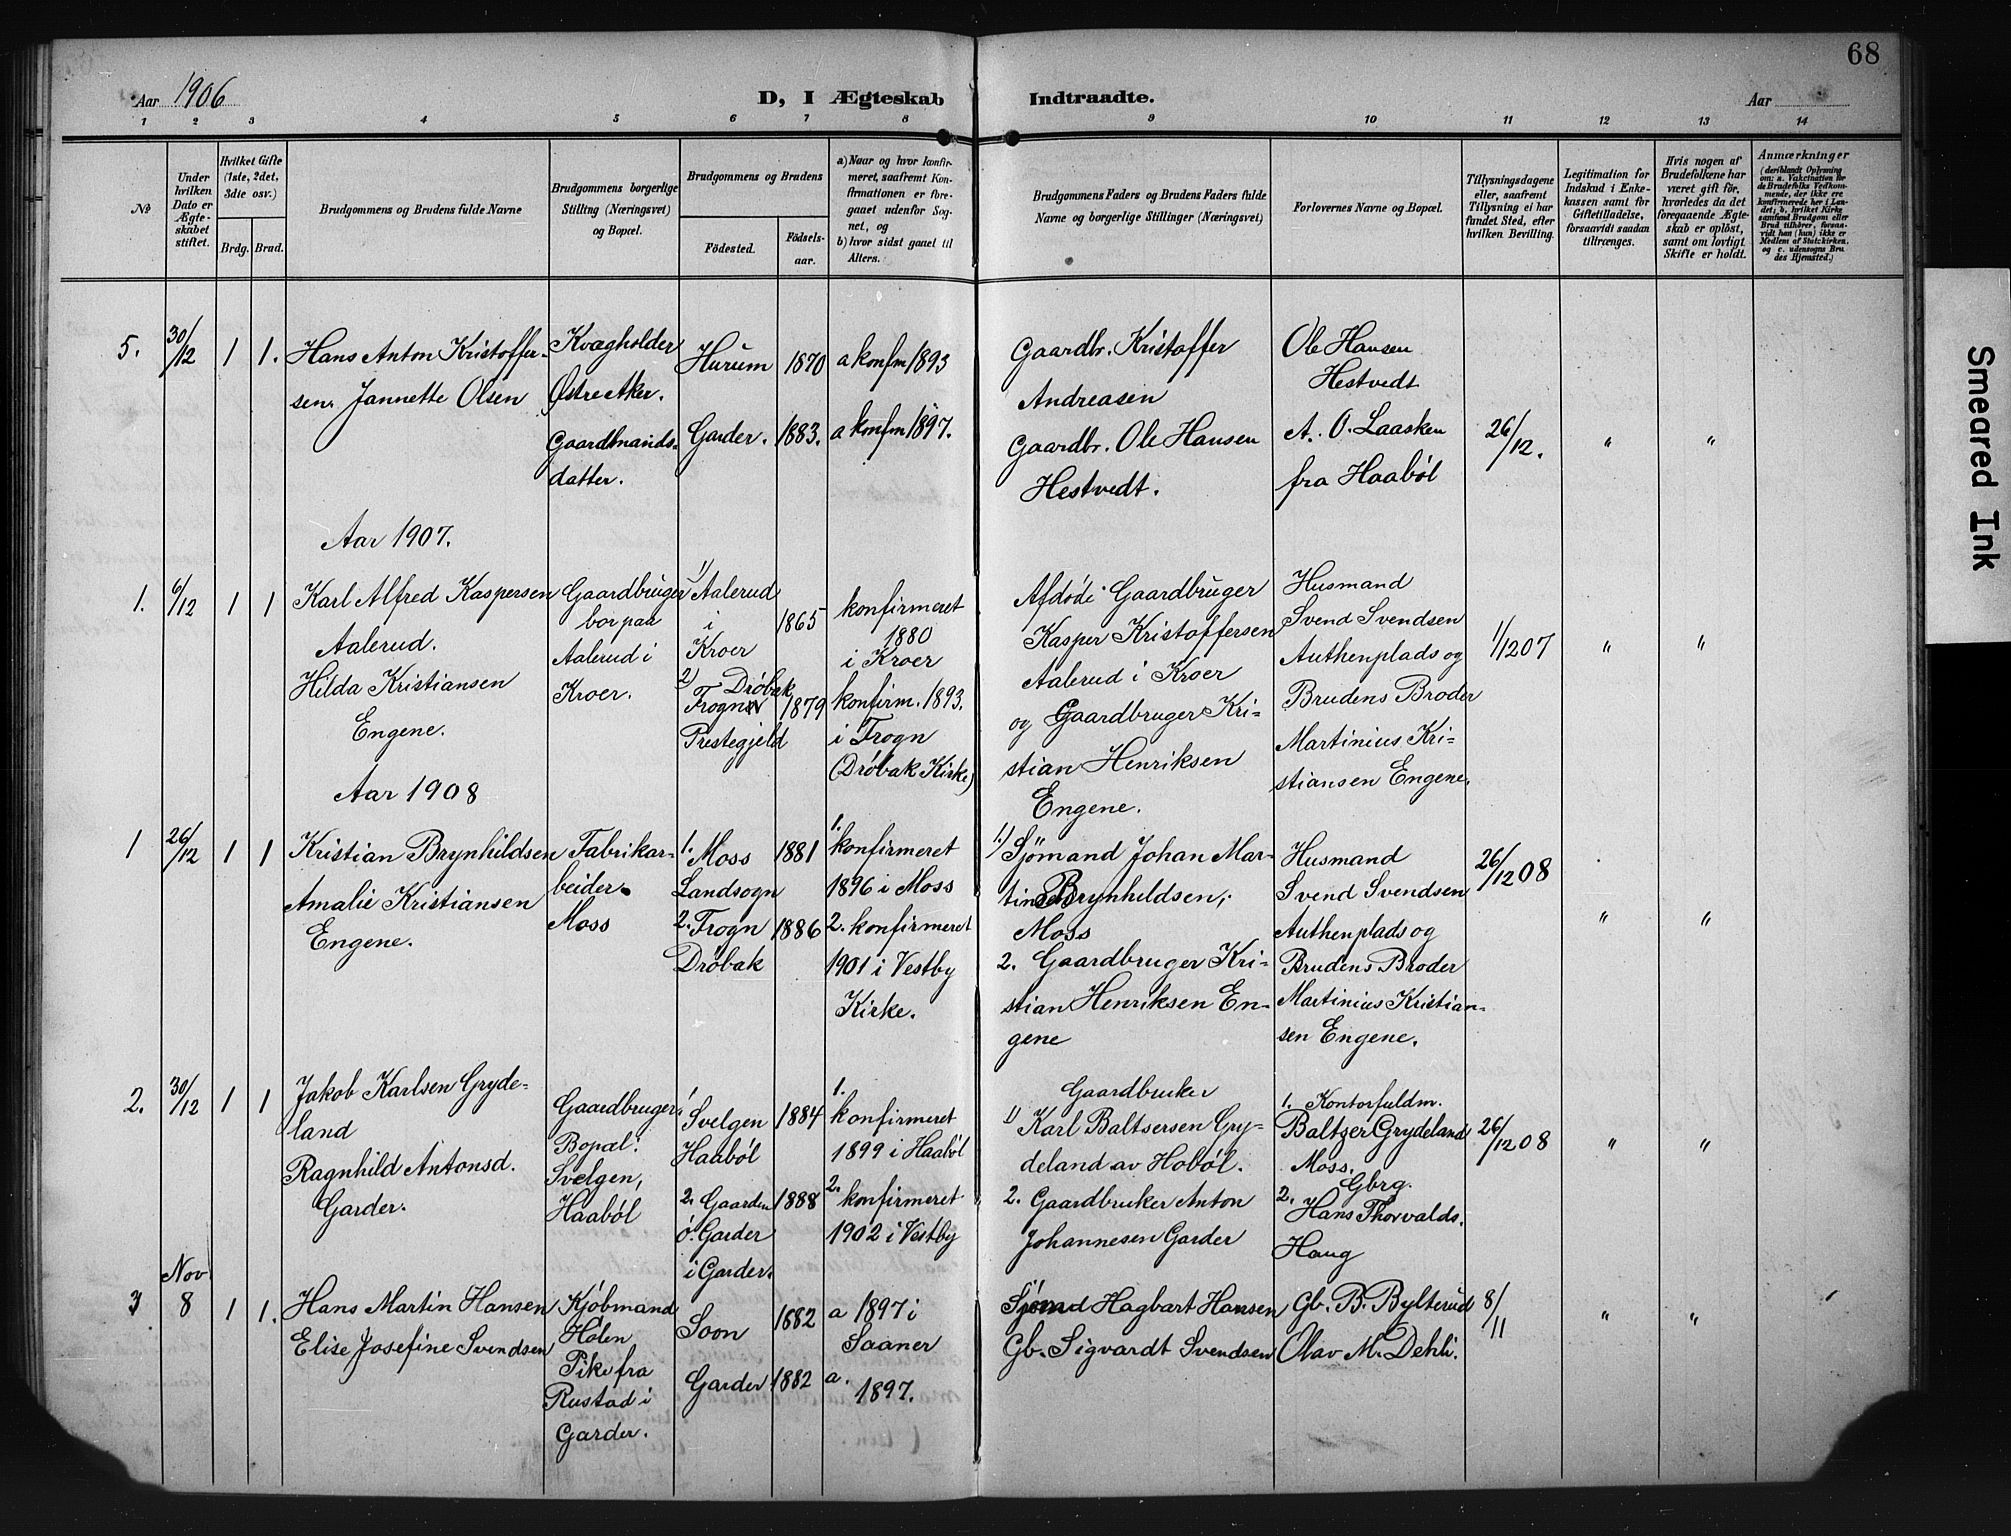 68
Aar 1906
D, I Ægteskab Indtraadte.
Aar
1 2 3 4 5 6 7 8 9 10 11 12 13 14
No
Under hvilken Dato er Ægteskabet stiftet.
Hvilket Gifte (1ste, 2det, 3die osv.)
Brdg. Brud.
Brudgommens og Brudens fulde Navne
Brudgommens borgerlige Stilling (Næringsvei) og Bopæl.
Brudgommens og Brudens
Fødested. Fødselsaar.
a) Naar og hvor konfirmeret, saafremt Konfirmationen er foregaaet udenfor Sognet, og
b) hvor sidst gaaet til Alters.
Brudgommens Faders og Brudens Faders fulde Navne og borgerlige Stillinger (Næringsvei)
Forlovernes Navne og Bopæl.
Tillysningsdagene eller, saafremt Tillysning ei har fundet Sted, efter hvilken Bevilling.
Legitimation for Indskud i Enkekassen samt for Giftetilladelse, forsaavidt saadan tiltrænges.
Hvis nogen af Brudefolkene har været gift før, hvorledes da det foregaaende Ægteskab er opløst, samt om lovligt Skifte er holdt.
Anmærkninger (deriblandt Oplysning om: a. Vakcination for de Brudefolks Vedkommende, der ikke ere konfirmerede her i Landet; b. hvilket Kirkesamfund Brudgom eller Brud tilhører, forsaavidt han (hun) ikke er Medlem af Statskirken, og c. udensogns Brudes Hjemsted.)
5. 30/12 1 1.
Hans Anton Kristoffer-
sen. Jannette Olsen
Kvægholder
Østre Aker.
Gaardmands-
datter.
Hurum 1870 a konfm 1893
Garder. 1883. a konfm 1897.
Gaardbr. Kristoffer
Andreasen
Gaardbr. Ole Hansen
Hestvedt.
Ole Hansen
Hestvedt
A. O. Laasken
fra Haabøl
26/12. " "
Aar 1907.
1. 6/12 1 1
Karl Alfred Kaspersen
Aalerud.
Hilda Kristiansen
Engene.
Gaardbruger
bor paa
Aalerud i
Kroer.
1) Aalerud
i
Kroer
1865
2) Drøbak
Trogn
Prestegjeld
1879
konfirmeret
1880
i Kroer
konfirm. 1893.
i Trogn
(Drøbak Kirke)
Afdøde Gaardbruger
Kasper Kristoffersen
Aalerud i Kroer
og Gaardbruger Kri-
stian Henriksen
Engene.
Husmand
Svend Svendsen
Authenplads og
Brudens Broder
Martinius Kri-
stiansen Engene.
1/12 07 " "
Aar 1908
1 26/12 1 1
Kristian Brynhildsen
Amalie Kristiansen
Engene.
Fabrikar-
beider.
Moss
1. Moss
Landsogn
1881
2. Trogn
Drøbak
1886
1.
konfirmeret
1896 i Moss
2. konfirmeret
1901 i Vestby
Kirke.
1.) Sjømand Johan Mar-
tinsen Brynhildsen,
Moss
2. Gaardbruger Kri-
stian Henriksen En-
gene
Husmand
Svend Svendsen
Authenplads og
Brudens Broder
Martinius Kristian-
sen Engene.
26/12 08 " "
2. 30/12 1 1
Jakob Karlsen Gryde-
land
Ragnhild Antonsd.
Garder.
Gaardbruger.
Bopæl:
Svelgen,
Haabøl
1 Svelgen
Haabøl
1884
2. Gaarden
ø. Garder
i Garder.
1888
1.
konfirmeret
1899 i Haabøl
2.
konfirmeret
1902 i Vestby
Gaardbruker
1) Karl Baltsersen Gry-
deland av Hobøl.
2. Gaardbruker Anton
Johannesen Garder
1. Kontorfuldm.
Baltzer Grydeland
Moss.
2. Gbrg.
Hans Thorvalds.
Haug
26/12 08 " "
3 Nov 8 1 1.
Hans Martin Hansen
Elise Josefine Svendsen
Kjøbmand
Hølen
Pike fra
Rustad i
Garder.
Soon 1882
Garder 1882
a 1897 i
Saaner
a.
1897.
Sjømd Hagbart Hansen
Gb. Sigvardt Svendsen
Gb. B. Bylterud
Olav M. Dehli.
8/11 " "
Smeared Ink